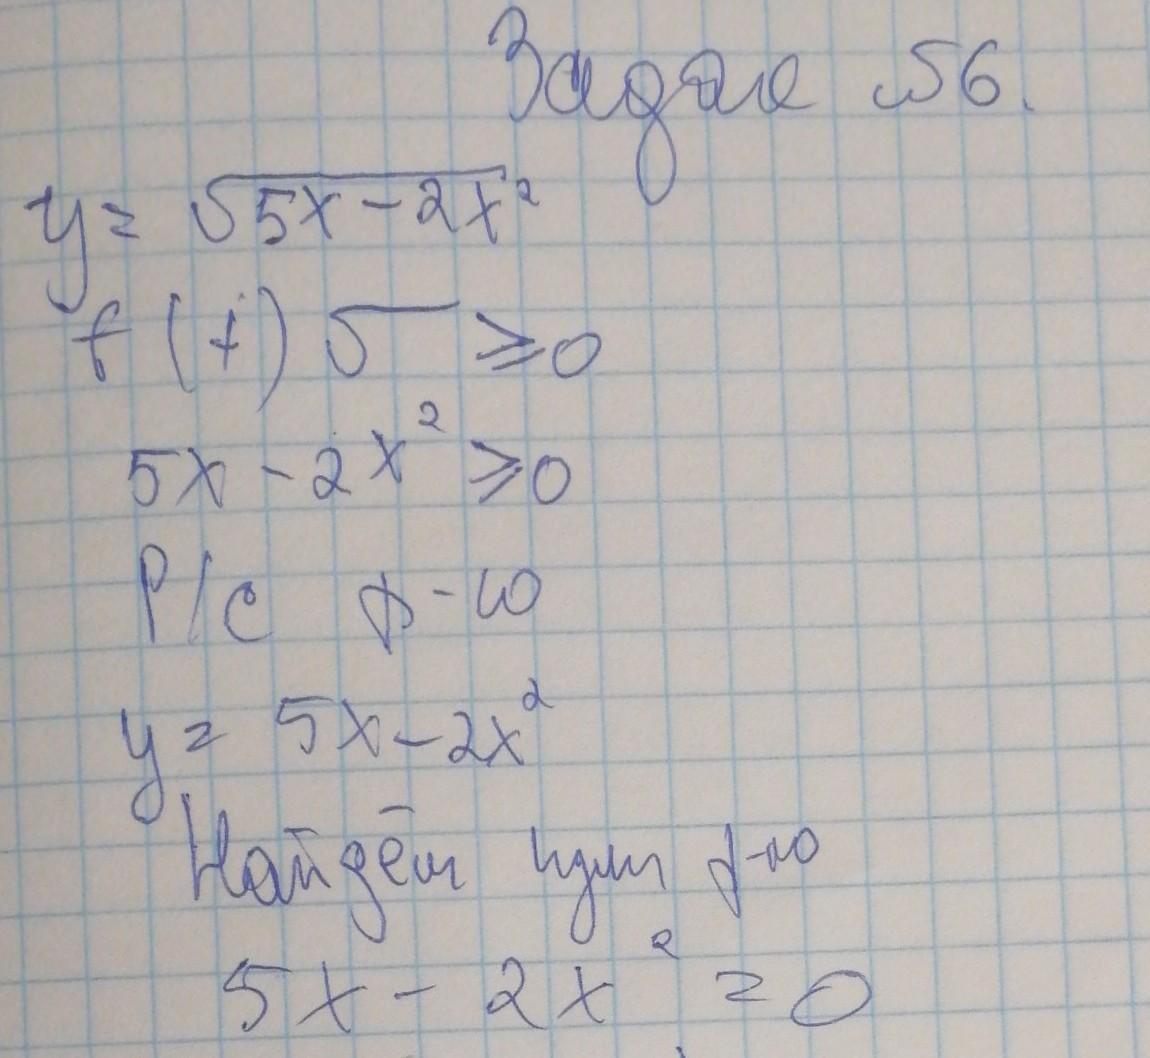 Задание №6.
y = √5x - 2x²
f(x) √ ≥ 0
5x - 2x² ≥ 0
Р/с ф-ю
y = 5x - 2x²
Найдём нули ф-ю
5x - 2x² = 0